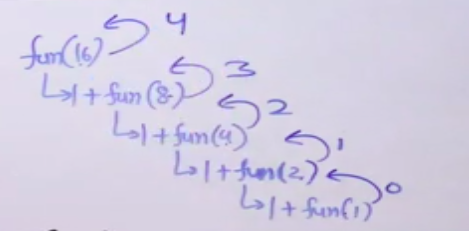 fun(16) 4
↳1 + fun(8) 3
↳1 + fun(4) 2
↳1 + fun(2) 1
↳1 + fun(1) 0